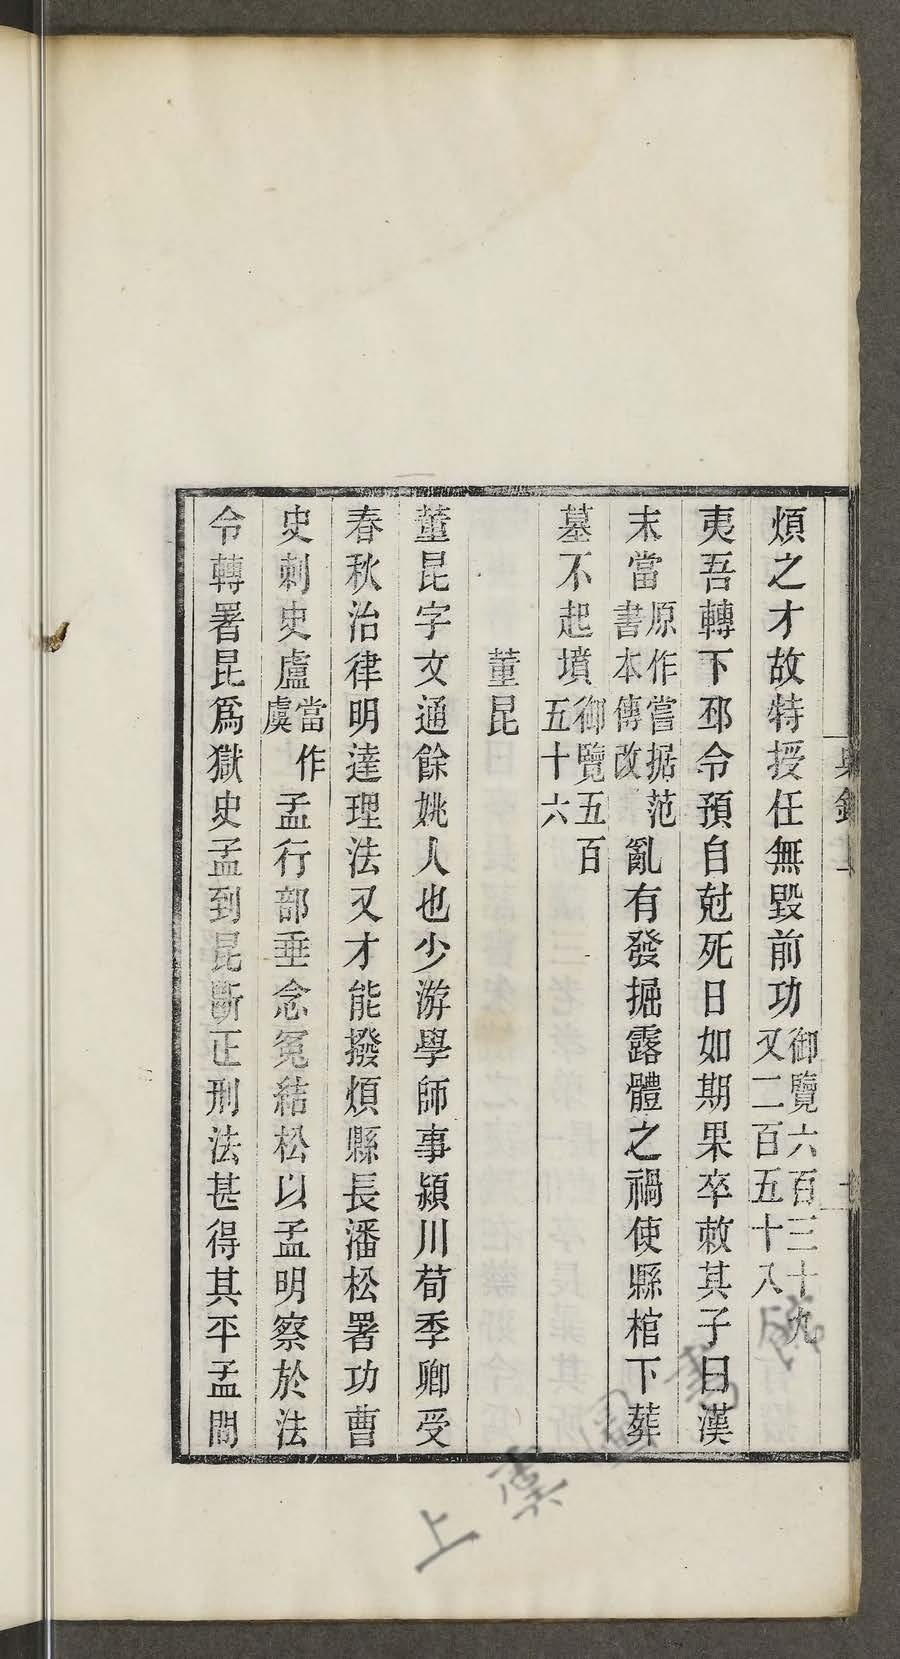 煩之才故特授任無毀前功御覽六百三十九又二百五十八
夷吾轉下邳令預自尅死日如期果卒敕其子曰漢
末當原作嘗据范書本傳改亂有發掘露體之禍使縣棺下葬
墓不起墳御覽五百五十六
董昆
董昆字文通餘姚人也少游學師事潁川荀季卿受
春秋治律明達理法又才能撥煩縣長潘松署功曹
史刺史盧當作虞孟行部垂念冤結松以孟明察於法
令轉署昆爲獄史孟到昆斷正刑法甚得其平孟問
上虞圖書館